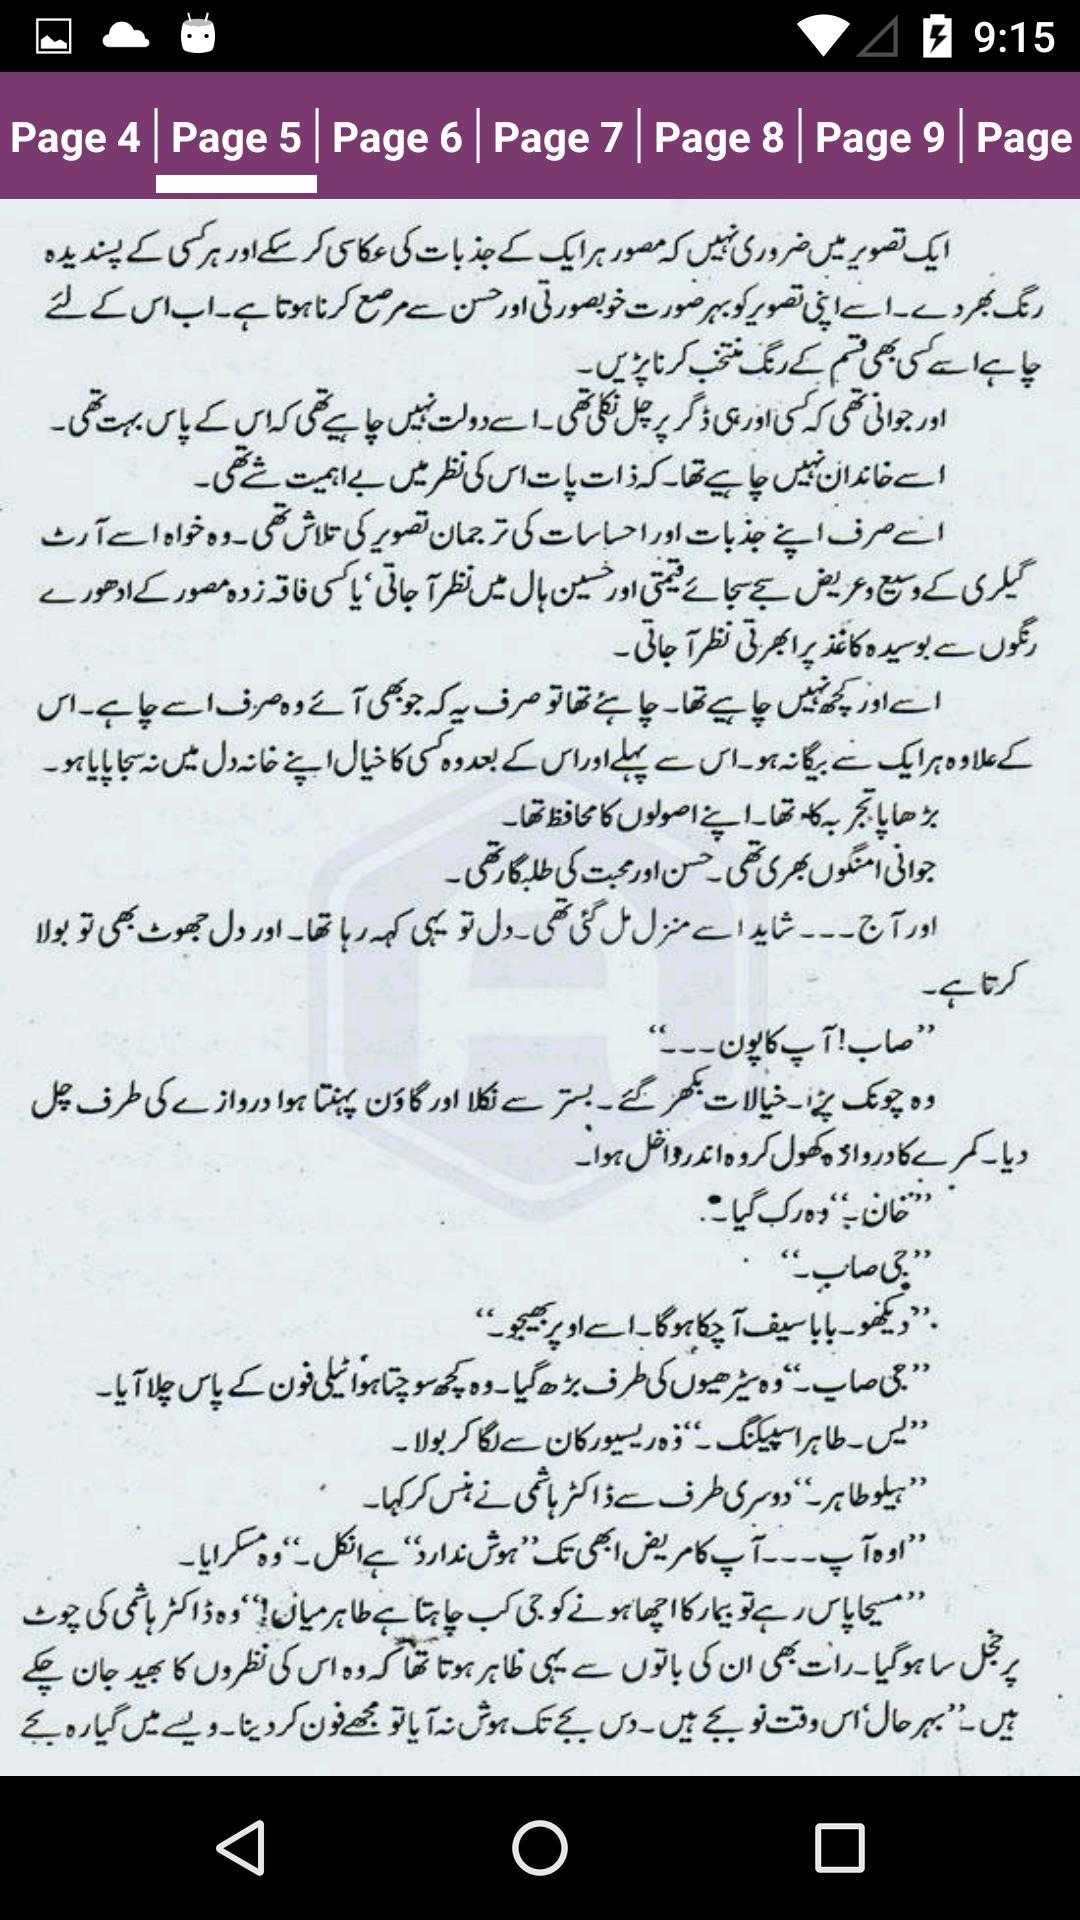 9:15
Page 4
Page 5
Page 6
Page 7
Page 8
Page 9
Page
ایک تصویر میں ضروری نہیں کہ مصور ہر ایک کے جذبات کی عکاسی کر سکے اور ہر کسی کے پسندیدہ
رنگ بھر دے۔ اسے اپنی تصویر کو بہر صورت خوبصورتی اور حسن سے مرصع کرنا ہوتا ہے۔ اب اس کے لئے
چاہے اسے کسی بھی قسم کے رنگ منتخب کرنا پڑیں۔
اور جوانی تھی کہ کسی اور ہی ڈگر پر چل نکلی تھی۔ اسے دولت نہیں چاہیے تھی کہ اس کے پاس بہت تھی۔
اسے خاندان نہیں چاہیے تھا۔ کہ ذات پات اس کی نظر میں بے اہمیت شے تھی۔
اسے صرف اپنے جذبات اور احساسات کی ترجمان تصویر کی تلاش تھی۔ وہ خواہ اسے آرٹ
گیلری کے وسیع و عریض سجے سجائے قیمتی اور حسین ہال میں نظر آ جاتی‘ یا کسی فاقہ زدہ مصور کے ادھورے
رنگوں سے بوسیدہ کاغذ پر ابھرتی نظر آ جاتی۔
اسے اور کچھ نہیں چاہیے تھا۔ چاہئے تھا تو صرف یہ کہ جو بھی آئے وہ صرف اسے چاہے۔ اس
کے علاوہ ہر ایک سے بیگانہ ہو۔ اس سے پہلے اور اس کے بعد وہ کسی کا خیال اپنے خانہ دل میں نہ سجا پایا ہو۔
بڑھاپا تجربہ کار تھا۔ اپنے اصولوں کا محافظ تھا۔
جوانی امنگوں بھری تھی۔ حسن اور محبت کی طلبگار تھی۔
اور آج۔۔۔ شاید اسے منزل مل گئی تھی۔ دل تو یہی کہہ رہا تھا۔ اور دل جھوٹ بھی تو بولا
کرتا ہے۔
’’صاب! آپ کا پون۔۔۔‘‘
وہ چونک پڑا۔ خیالات بکھر گئے۔ بستر سے نکلا اور گاؤن پہنتا ہوا دروازے کی طرف چل
دیا۔ کمرے کا دروازہ کھول کر وہ اندر داخل ہوا۔
’’خان۔‘‘ وہ رک گیا۔
’’جی صاب۔‘‘
’’دیکھو۔ بابا سیف آ چکا ہو گا۔ اسے اوپر بھیجو۔‘‘
’’جی صاب۔‘‘ وہ سیڑھیوں کی طرف بڑھ گیا۔ وہ کچھ سوچتا ہوا ٹیلی فون کے پاس چلا آیا۔
’’لیس۔ طاہر اسپیکنگ۔‘‘ وہ ریسیور کان سے لگا کر بولا۔
’’ہیلو طاہر۔‘‘ دوسری طرف سے ڈاکٹر ہاشمی نے ہنس کر کہا۔
’’اوہ آپ۔۔۔ آپ کا مریض ابھی تک ’’ہوش ندارد‘‘ ہے انکل۔‘‘ وہ مسکرایا۔
’’مسیحا پاس رہے تو بیمار کا اچھا ہونے کو جی کب چاہتا ہے طاہر میاں!‘‘ وہ ڈاکٹر ہاشمی کی چوٹ
پر خجل سا ہو گیا۔ رات بھی ان کی باتوں سے یہی ظاہر ہوتا تھا کہ وہ اس کی نظروں کا بھید جان چکے
ہیں۔ ’’بہر حال‘ اس وقت نو بجے ہیں۔ دس بجے تک ہوش نہ آیا تو مجھے فون کر دینا۔ ویسے میں گیارہ بجے